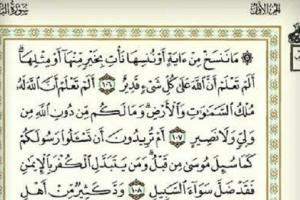 الجزء الأول
سورة البقرة
۞ مَا نَنسَخْ مِنْ ءَايَةٍ أَوْ نُنسِهَا نَأْتِ بِخَيْرٍ مِّنْهَا أَوْ مِثْلِهَا ۗ
أَلَمْ تَعْلَمْ أَنَّ ٱللَّهَ عَلَىٰ كُلِّ شَىْءٍ قَدِيرٌ ١٠٦ أَلَمْ تَعْلَمْ أَنَّ ٱللَّهَ لَهُۥ
مُلْكُ ٱلسَّمَٰوَٰتِ وَٱلْأَرْضِ ۗ وَمَا لَكُم مِّن دُونِ ٱللَّهِ مِن
وَلِىٍّ وَلَا نَصِيرٍ ١٠٧ أَمْ تُرِيدُونَ أَن تَسْـَٔلُوا۟ رَسُولَكُمْ
كَمَا سُئِلَ مُوسَىٰ مِن قَبْلُ ۗ وَمَن يَتَبَدَّلِ ٱلْكُفْرَ بِٱلْإِيمَٰنِ
فَقَدْ ضَلَّ سَوَآءَ ٱلسَّبِيلِ ١٠٨ وَدَّ كَثِيرٌ مِّنْ أَهْلِ